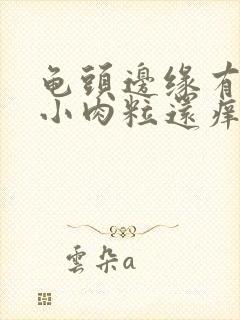 龟頭邊缘有
小肉粒還痒
雲朵a